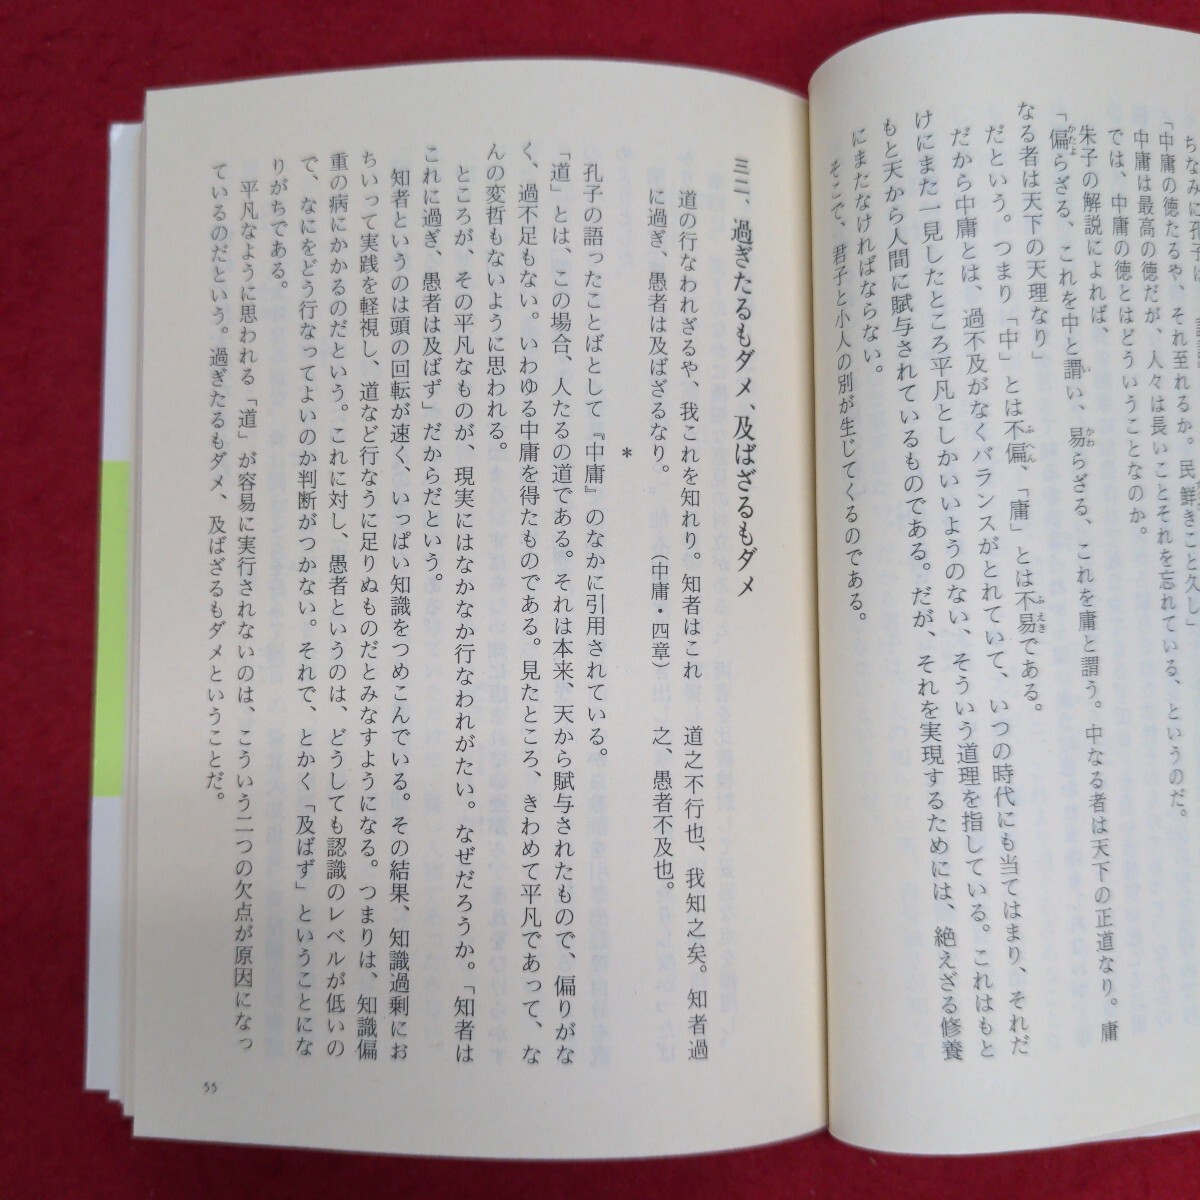 「中庸の徳たるや、それ至れるか。民鮮きこと久し」
中庸は最高の徳だが、人々は長いことそれを忘れている、というのだ。
では、中庸の徳とはどういうことなのか。
朱子の解説によれば、
「偏らざる、これを中と謂い、易らざる、これを庸と謂う。中なる者は天下の正道なり。庸
なる者は天下の天理なり」
だという。つまり「中」とは不偏、「庸」とは不易である。
だから中庸とは、過不及がなくバランスがとれていて、いつの時代にも当てはまり、それだ
けにまた一見したところ平凡としかいいようのない、そういう道理を指している。これはもと
もと天から人間に賦与されているものである。だが、それを実現するためには、絶えざる修養
にまたなければならない。
そこで、君子と小人の別が生じてくるのである。
三二、過ぎたるもダメ、及ばざるもダメ
道の行なわれざるや、我これを知れり。知者はこれ
に過ぎ、愚者は及ばざるなり。 (中庸・四章)
道之不行也、我知之矣。知者過
之、愚者不及也。
*
孔子の語ったことばとして『中庸』のなかに引用されている。
「道」とは、この場合、人たるの道である。それは本来、天から賦与されたもので、偏りがな
く、過不足もない。いわゆる中庸を得たものである。見たところ、きわめて平凡であって、な
んの変哲もないように思われる。
ところが、その平凡なものが、現実にはなかなか行なわれがたい。なぜだろうか。「知者は
これに過ぎ、愚者は及ばず」だからだという。
知者というのは頭の回転が速く、いっぱい知識をつめこんでいる。その結果、知識過剰にお
ちいって実践を軽視し、道など行なうに足りぬものだとみなすようになる。つまりは、知識偏
重の病にかかるのだという。これに対し、愚者というのは、どうしても認識のレベルが低いの
で、なにをどう行なってよいのか判断がつかない。それで、とかく「及ばず」ということにな
りがちである。
平凡なように思われる「道」が容易に実行されないのは、こういう二つの欠点が原因になっ
ているのだという。過ぎたるもダメ、及ばざるもダメということだ。
55